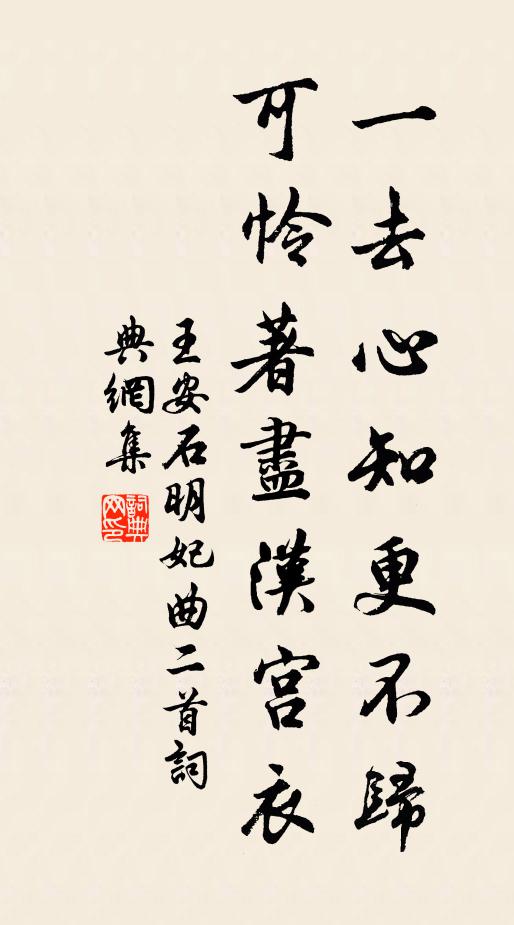 一去心知更不歸
可怜著盡漢宮衣
王安石明妃曲二首詞
典網集
詞典网印